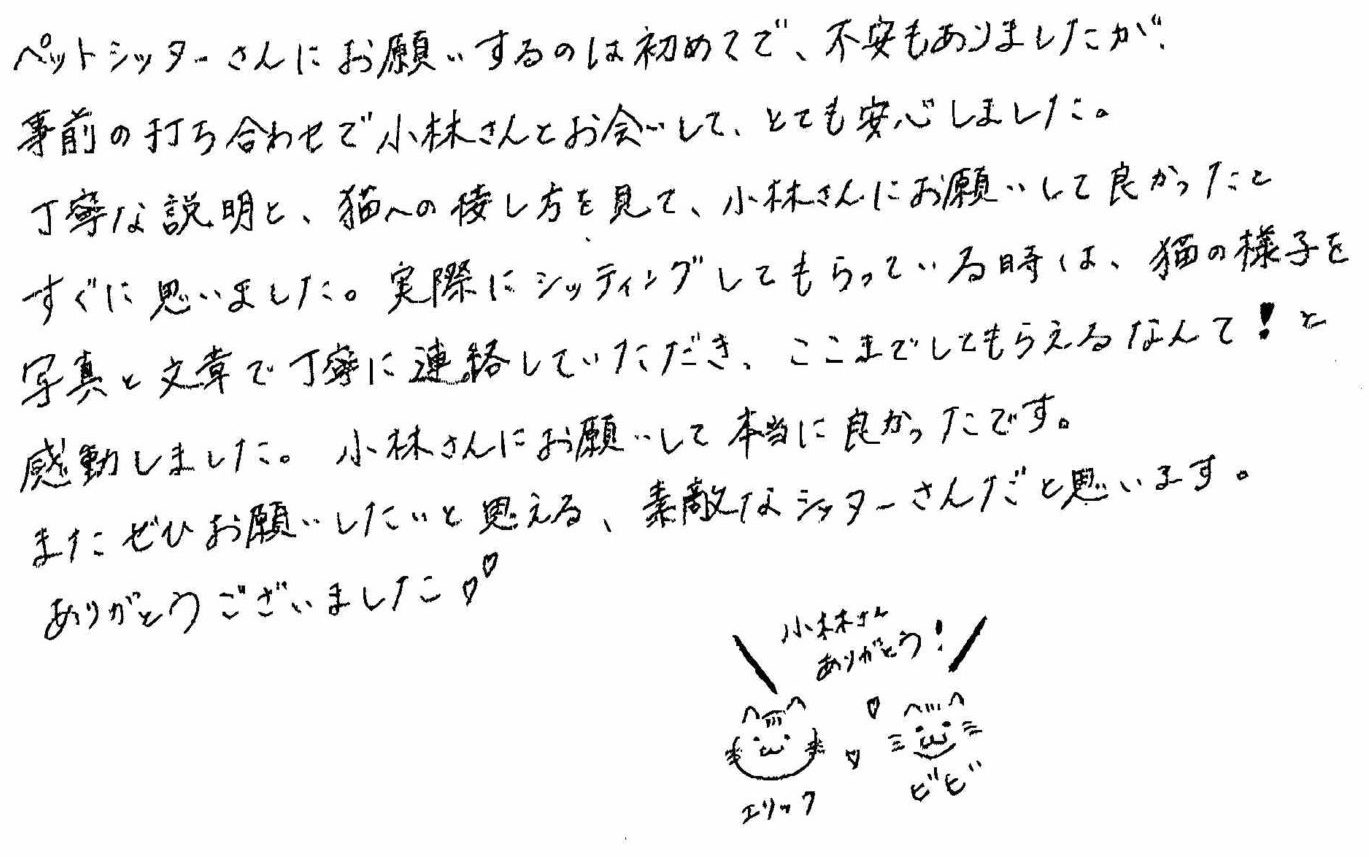 ペットシッターさんにお願いするのは初めてで、不安もありましたが、
事前の打ち合わせで小林さんとお会いして、とても安心しました。
丁寧な説明と、猫への接し方を見て、小林さんにお願いして良かったと
すぐに思いました。実際にシッティングしてもらっている時は、猫の様子を
写真と文章で丁寧に連絡していただき、ここまでしてもらえるなんて!と
感動しました。小林さんにお願いして本当に良かったです。
またぜひお願いしたいと思える、素敵なシッターさんだと思います。
ありがとうございました♡♡
小林さん
ありがとう!
エリック
ビビ